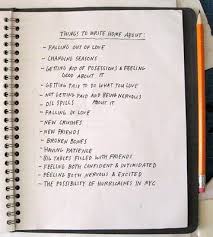 THINGS TO WRITE HOME ABOUT:
- FALLING OUT OF LOVE
- CHANGING SEASONS
- GETTING RID OF POSESSIONS & FEELING
GOOD ABOUT IT
- GETTING PAID TO DO WHAT YOU LOVE
- NOT GETTING PAID AND BEING NERVOUS
ABOUT IT
- OIL SPILLS
- FALLING IN LOVE
- NEW CRUSHES
- NEW FRIENDS
- BROKEN BONES
- HAVING PATIENCE
- BIG TABLES FILLED WITH FRIENDS
- FEELING BOTH CONFIDENT & INTIMIDATED
- FEELING BOTH NERVOUS & EXCITED
- THE POSSIBILITY OF HURRICANES IN NYC